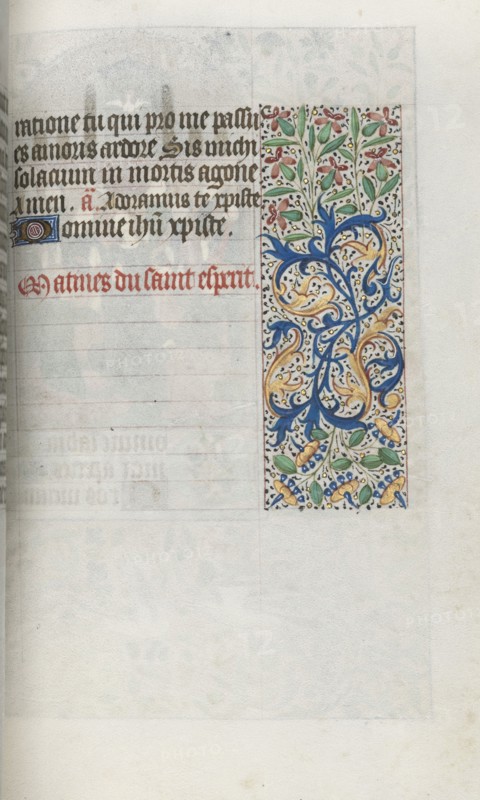 ratione tu qui pro me passus
es amoris ardore Sis michi
solacium in mortis agone
Amen. añ Adoramus te xpiste
Domine ihū xpiste.
Matines du saint esperit.